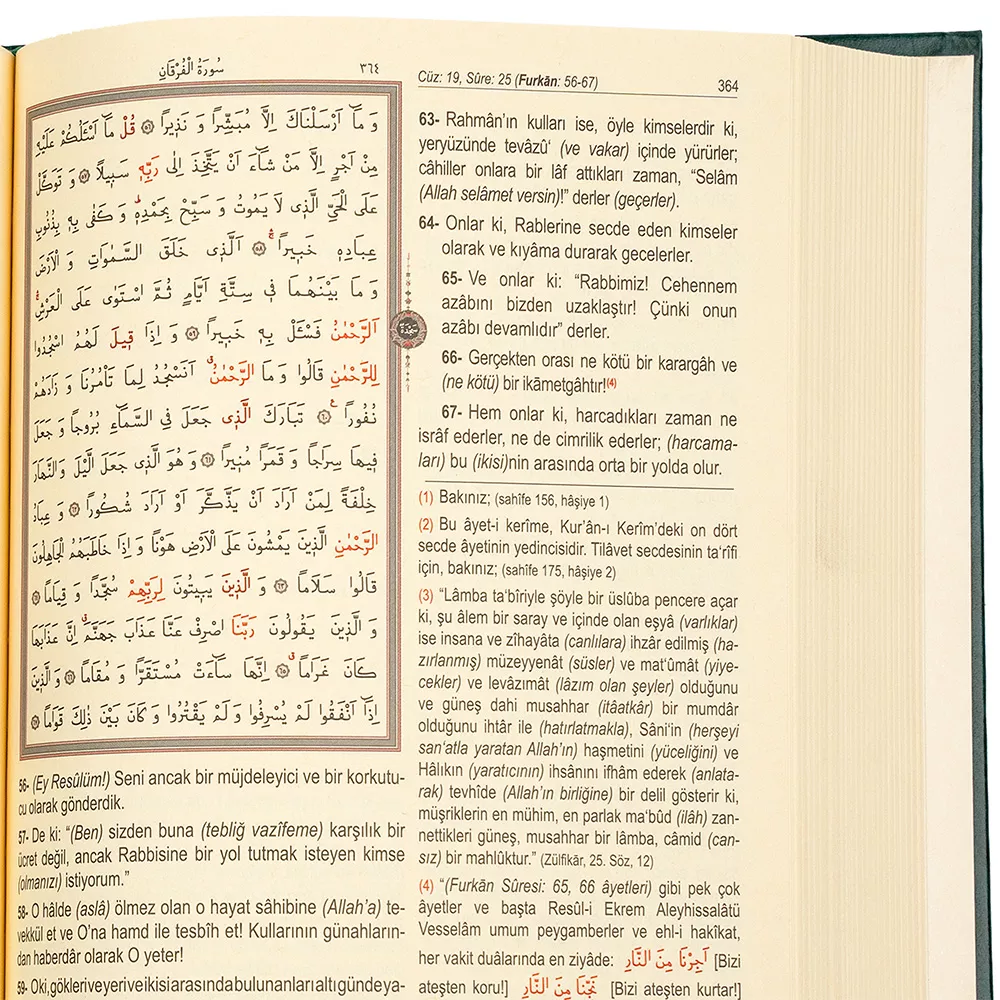 سُورَةُ الْفُرْقَانِ
٣٦٤
وَ مَٓا اَرْسَلْنَاكَ اِلَّا مُبَشِّرًا وَ نَذٖيرًا ﴿٥٦﴾ قُلْ مَٓا اَسْـَٔلُكُمْ عَلَيْهِ
مِنْ اَجْرٍ اِلَّا مَنْ شَٓاءَ اَنْ يَتَّخِذَ اِلٰى رَبِّهٖ سَبٖيلًا ﴿٥٧﴾ وَ تَوَكَّلْ
عَلَى الْحَىِّ الَّذٖى لَا يَمُوتُ وَ سَبِّحْ بِحَمْدِهٖ وَ كَفٰى بِهٖ بِذُنُوبِ
عِبَادِهٖ خَبٖيرًا ﴿٥٨﴾ اَلَّذٖى خَلَقَ السَّمٰوَاتِ وَ الْاَرْضَ
وَ مَا بَيْنَهُمَا فٖى سِتَّةِ اَيَّامٍ ثُمَّ اسْتَوٰى عَلَى الْعَرْشِ
اَلرَّحْمٰنُ فَسْـَٔلْ بِهٖ خَبٖيرًا ﴿٥٩﴾ وَ اِذَا قٖيلَ لَهُمُ اسْجُدُوا
لِلرَّحْمٰنِ قَالُوا وَ مَا الرَّحْمٰنُ اَنَسْجُدُ لِمَا تَأْمُرُنَا وَ زَادَهُمْ
نُفُورًا ﴿٦٠﴾ تَبَارَكَ الَّذٖى جَعَلَ فِى السَّمَٓاءِ بُرُوجًا وَ جَعَلَ
فٖيهَا سِرَاجًا وَ قَمَرًا مُنٖيرًا ﴿٦١﴾ وَ هُوَ الَّذٖى جَعَلَ الَّيْلَ وَ النَّهَارَ
خِلْفَةً لِمَنْ اَرَادَ اَنْ يَذَّكَّرَ اَوْ اَرَادَ شُكُورًا ﴿٦٢﴾ وَ عِبَادُ
الرَّحْمٰنِ الَّذٖينَ يَمْشُونَ عَلَى الْاَرْضِ هَوْنًا وَ اِذَا خَاطَبَهُمُ الْجَاهِلُونَ
قَالُوا سَلَامًا ﴿٦٣﴾ وَ الَّذٖينَ يَبٖيتُونَ لِرَبِّهِمْ سُجَّدًا وَ قِيَامًا ﴿٦٤﴾
وَ الَّذٖينَ يَقُولُونَ رَبَّنَا اصْرِفْ عَنَّا عَذَابَ جَهَنَّمَ اِنَّ عَذَابَهَا
كَانَ غَرَامًا ﴿٦٥﴾ اِنَّهَا سَٓاءَتْ مُسْتَقَرًّا وَ مُقَامًا ﴿٦٦﴾ وَ الَّذٖينَ
اِذَٓا اَنْفَقُوا لَمْ يُسْرِفُوا وَ لَمْ يَقْتُرُوا وَ كَانَ بَيْنَ ذٰلِكَ قَوَامًا ﴿٦٧﴾
سَجْدَة
56- (Ey Resûlüm!) Seni ancak bir müjdeleyici ve bir korkutu-
cu olarak gönderdik.
57- De ki: “(Ben) sizden buna (tebliğ vazîfeme) karşılık bir
ücret değil, ancak Rabbisine bir yol tutmak isteyen kimse
(olmanızı) istiyorum.”
58- O hâlde (aslâ) ölmez olan o hayat sâhibine (Allah’a) te-
vekkül et ve O’na hamd ile tesbîh et! Kullarının günahların-
dan haberdâr olarak O yeter!
59- O ki, gökleri ve yeri ve ikisi arasında bulunanları altı günde ya-
Cüz: 19, Sûre: 25 (Furkān: 56-67)
364
63- Rahmân’ın kulları ise, öyle kimselerdir ki,
yeryüzünde tevâzû‘ (ve vakar) içinde yürürler;
câhiller onlara bir lâf attıkları zaman, “Selâm
(Allah selâmet versin)!” derler (geçerler).
64- Onlar ki, Rablerine secde eden kimseler
olarak ve kıyâma durarak gecelerler.
65- Ve onlar ki: “Rabbimiz! Cehennem
azâbını bizden uzaklaştır! Çünki onun
azâbı devamlıdır” derler.
66- Gerçekten orası ne kötü bir karargâh ve
(ne kötü) bir ikāmetgâhtır!(4)
67- Hem onlar ki, harcadıkları zaman ne
isrâf ederler, ne de cimrilik ederler; (harcama-
ları) bu (ikisi)nin arasında orta bir yolda olur.
(1) Bakınız; (sahîfe 156, hâşiye 1)
(2) Bu âyet-i kerîme, Kur’ân-ı Kerîm’deki on dört
secde âyetinin yedincisidir. Tilâvet secdesinin ta‘rîfi
için, bakınız; (sahîfe 175, hâşiye 2)
(3) “Lâmba ta‘bîriyle şöyle bir üslûba pencere açar
ki, şu âlem bir saray ve içinde olan eşyâ (varlıklar)
ise insana ve zîhayâta (canlılara) ihzâr edilmiş (ha-
zırlanmış) müzeyyenât (süsler) ve mat‘ûmât (yiye-
cekler) ve levâzımât (lâzım olan şeyler) olduğunu
ve güneş dahi musahhar (itâatkâr) bir mumdâr
olduğunu ihtâr ile (hatırlatmakla), Sâni‘in (herşeyi
san‘atla yaratan Allah’ın) haşmetini (yüceliğini) ve
Hâlıkın (yaratıcının) ihsânını ifhâm ederek (anlata-
rak) tevhîde (Allah’ın birliğine) bir delil gösterir ki,
müşriklerin en mühim, en parlak ma‘bûd (ilâh) zan-
nettikleri güneş, musahhar bir lâmba, câmid (can-
sız) bir mahlûktur.” (Zülfikār, 25. Söz, 12)
(4) “(Furkān Sûresi: 65, 66 âyetleri) gibi pek çok
âyetler ve başta Resûl-i Ekrem Aleyhissalâtü
Vesselâm umum peygamberler ve ehl-i hakîkat,
her vakit duâlarında en ziyâde: اَجِرْنَا مِنَ النَّارِ [Bizi
ateşten koru!] نَجِّنَا مِنَ النَّارِ [Bizi ateşten kurtar!]